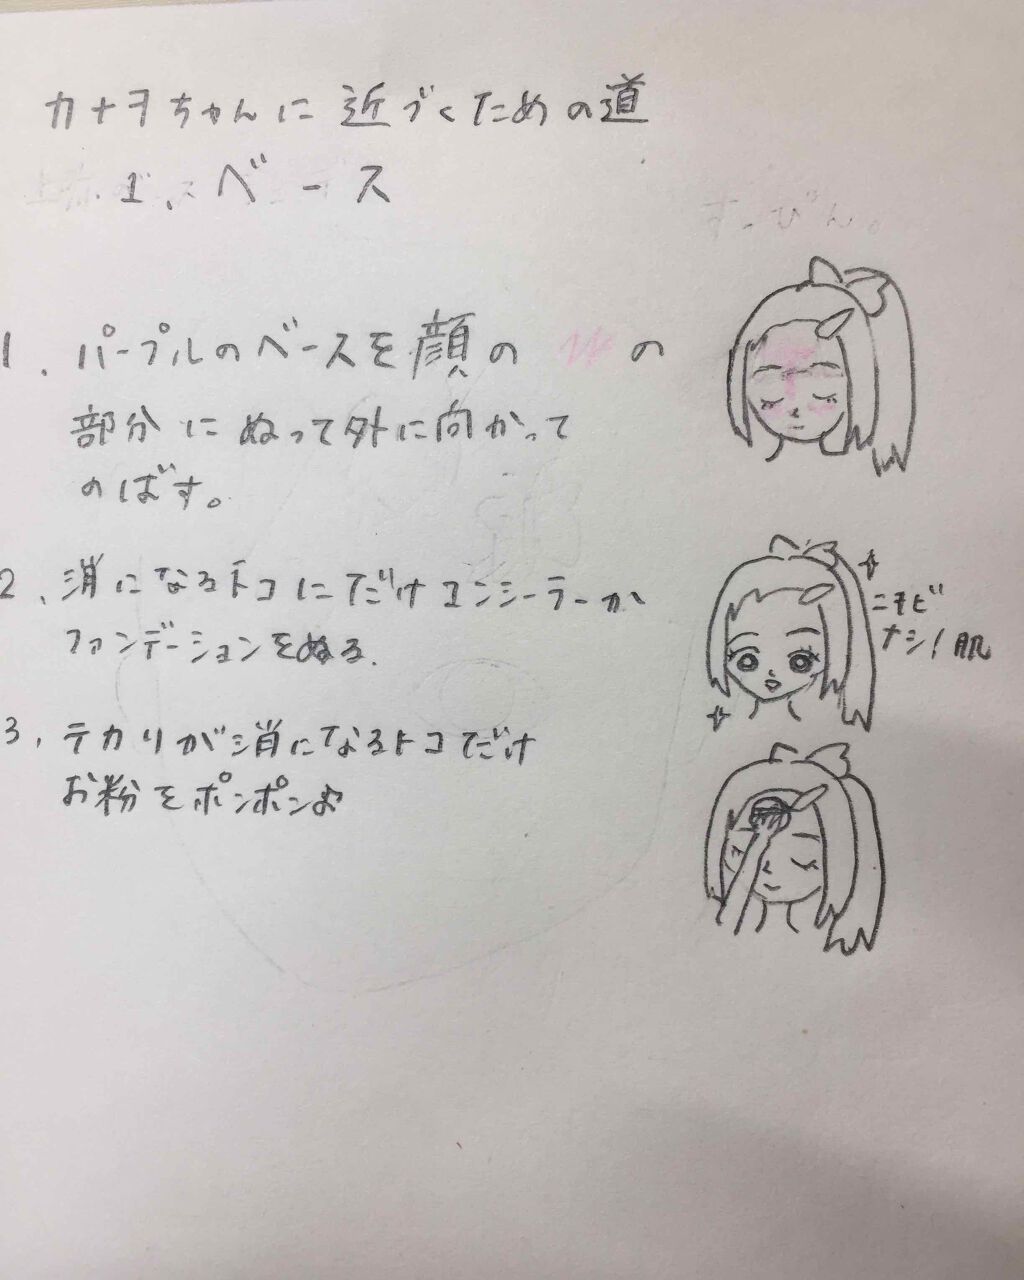 カナヲちゃんに近づくための道
1.ベース
1.パープルのベースを顔の の
部分にぬって外に向かって
のばす。
2.消になるトコにだけコンシーラーか
ファンデーションをぬる.
ニキビ
ナシ!肌
3.テカリが消になるトコだけ
お粉をポンポン♪